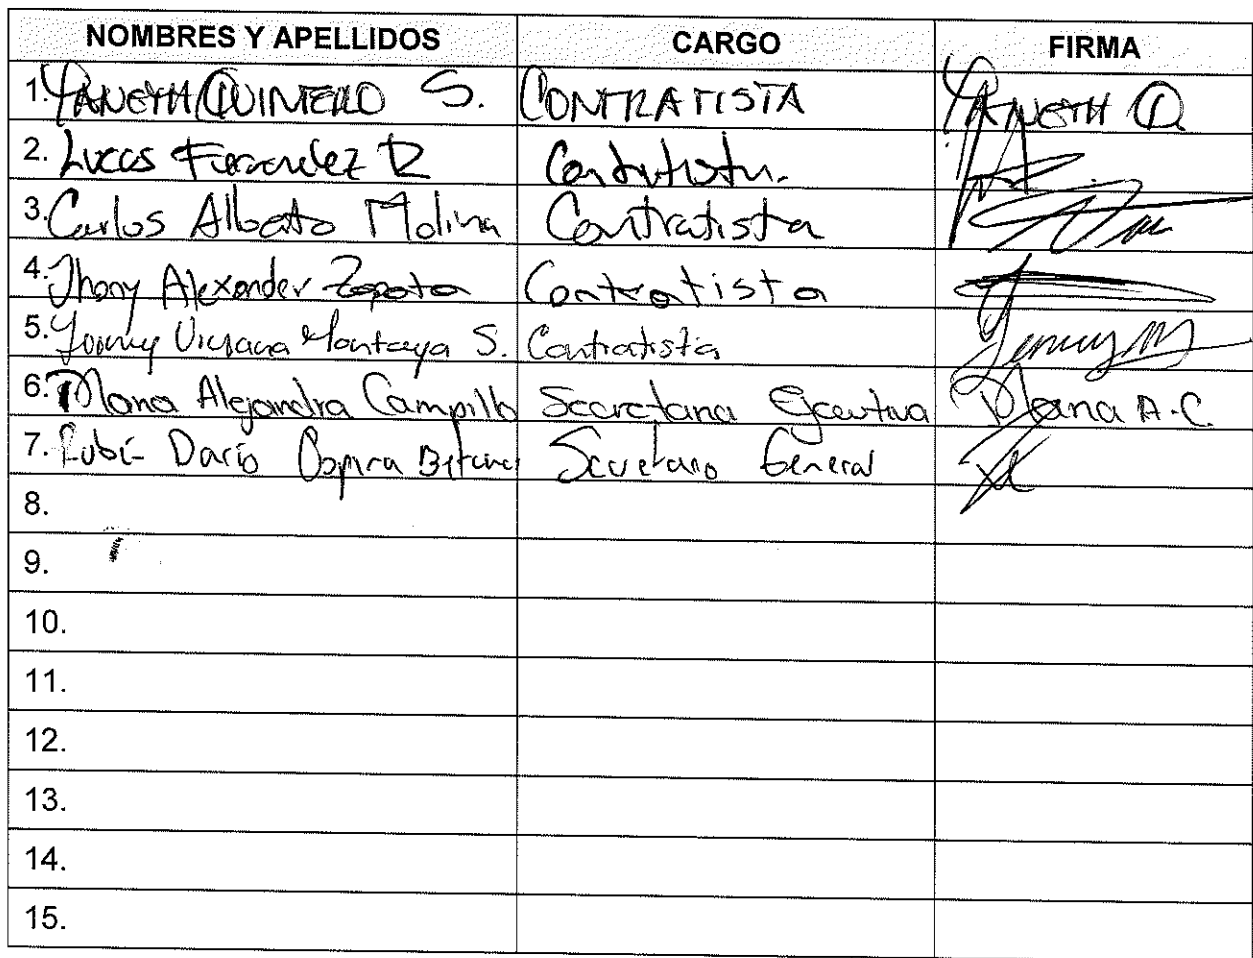 NOMBRES Y APELLIDOS CARGO FIRMA
1. YANETH QUINTERO S. CONTRATISTA YANETH Q.
2. Lucas Fernandez R Contratista
3. Carlos Alberto Molina Contratista
4. Jhony Alexander Zapata Contratista
5. Yenny Viviana Montoya S. Contratista Yenny M
6. Alejandra Campillo Secretaria Ejecutiva A.C.
7. Rubén Darío Secretario General
8.
9.
10.
11.
12.
13.
14.
15.